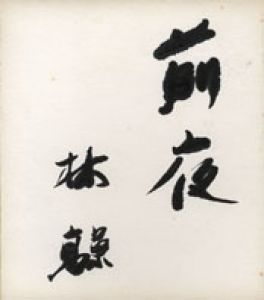 前夜
林